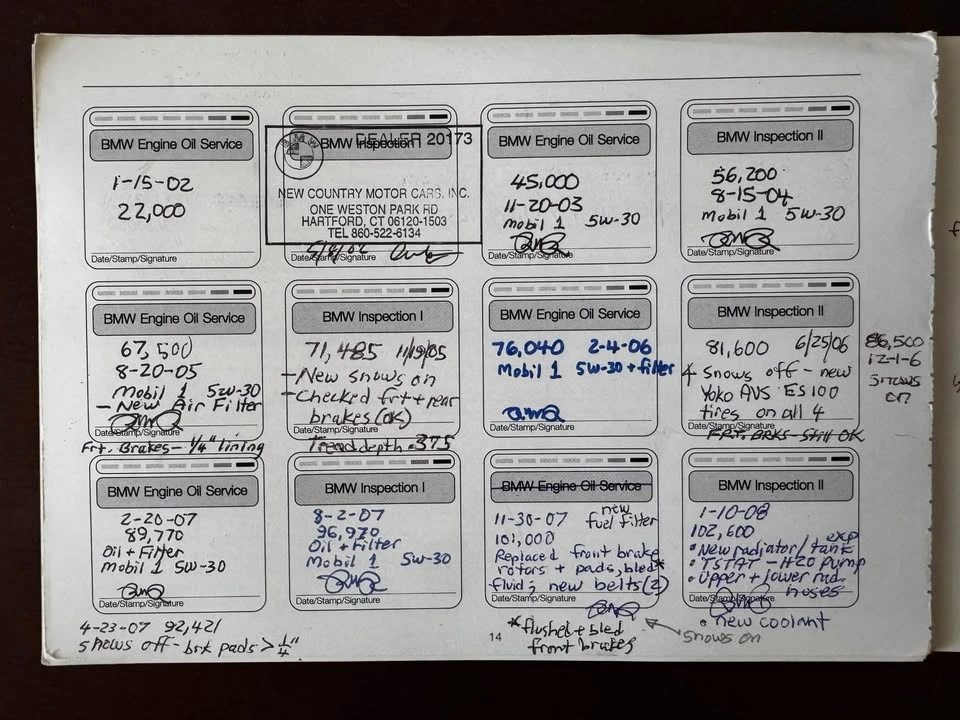 BMW Engine Oil Service
1-15-02
22,000
Date/Stamp/Signature
DEALER 20173
BMW Inspection
BMW
NEW COUNTRY MOTOR CARS, INC.
ONE WESTON PARK RD
HARTFORD, CT 06120-1503
TEL 860-522-6134
Date/Stamp/Signature
BMW Engine Oil Service
45,000
11-20-03
Mobil 1 5W-30
Date/Stamp/Signature
BMW Inspection II
56,200
8-15-04
Mobil 1 5W-30
Date/Stamp/Signature
BMW Engine Oil Service
67,500
8-20-05
Mobil 1 5W-30
- New Air Filter
Date/Stamp/Signature
Frt. Brakes - 1/4" lining
BMW Inspection I
71,485 11/19/05
- New snows on
- Checked frt + rear
brakes (OK)
Date/Stamp/Signature
Tread depth .375
BMW Engine Oil Service
76,040 2-4-06
Mobil 1 5W-30 + filter
Date/Stamp/Signature
BMW Inspection II
81,600 6/25/06
Snows off - new
Yoko AVS ES100
tires on all 4
Date/Stamp/Signature
FRT. BRKS - Still OK
86,500
12-1-6
snows
on
BMW Engine Oil Service
2-20-07
89,770
Oil + Filter
Mobil 1 5W-30
Date/Stamp/Signature
4-23-07 92,421
snows off - brk pads > 1/4"
BMW Inspection I
8-2-07
96,970
Oil + Filter
Mobil 1 5W-30
Date/Stamp/Signature
BMW Engine Oil Service
11-30-07 new fuel filter
101,000
Replaced front brake
rotors + pads, bled*
fluid; new belts (2)
Date/Stamp/Signature
*flushed + bled
front brakes
snows on
BMW Inspection II
1-10-08
102,600
• New radiator/exp tank
• TSTAT - H2O pump
• Upper + lower rad
hoses
Date/Stamp/Signature
• new coolant
14